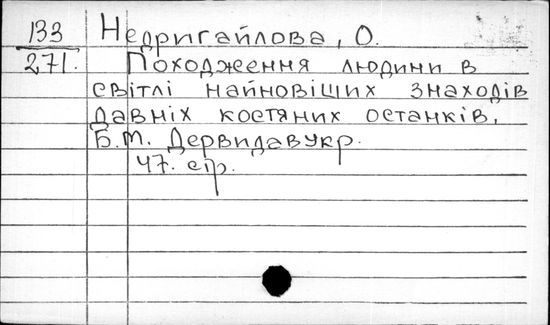 133 Недригайлова, О.
271. Походження людини в
світлі найновіщих знаходів
давніх костяних останків.
Б.М. Дервидавукр.
47. стр.